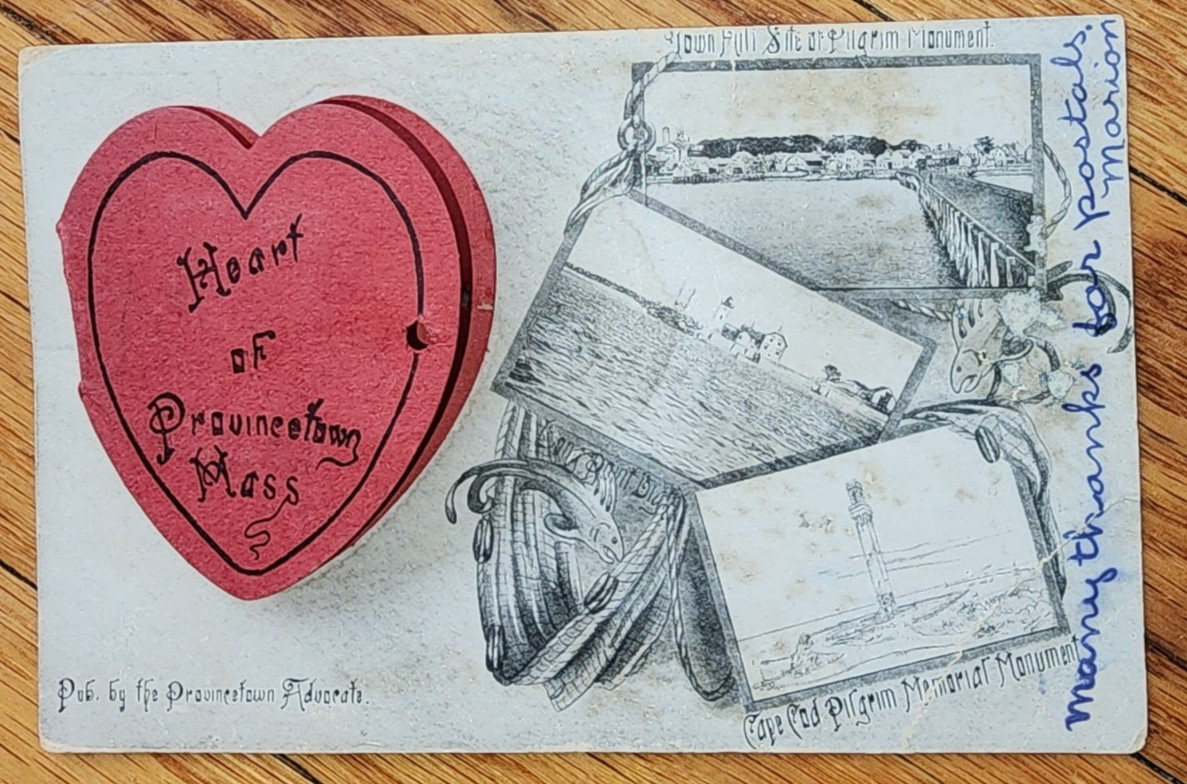 Town Hill Site of Pilgrim Monument.
Heart
of
Provincetown
Mass
Long Point Light
Cape Cod Pilgrim Memorial Monument
Pub. by the Provincetown Advocate.
many thanks for postals.
Marion